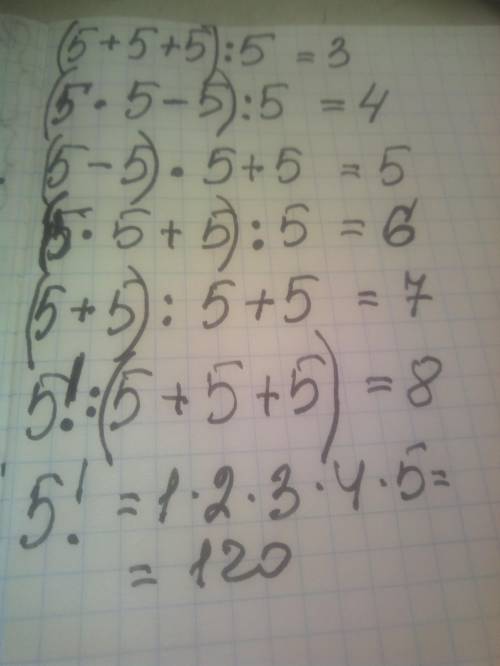 (5+5+5):5 = 3
(5·5-5):5 = 4
(5-5)·5+5 = 5
(5·5+5):5 = 6
(5+5):5+5 = 7
5!:(5+5+5) = 8
5! = 1·2·3·4·5=
= 120